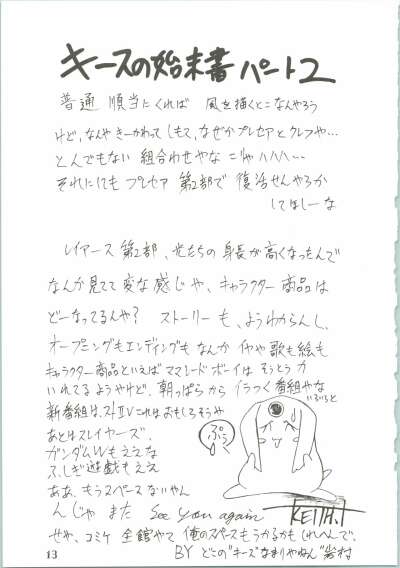 キースの始末書 パート2
普通 順当にくれば 風を描くとこなんやろう
けど、なんや きーかわって しもて、なぜか プレセアとクレフや…
とんでもない 組合わせやな こりゃハハハ…
それにしても プレセア 第2部で 復活せんやろか
してほしーな
レイアース 第2部、光たちの 身長が高くなったんで
なんか見てて変な感じや、キャラクター商品は
どーなってるんや? ストーリーも、ようわからんし、
オープニングもエンディングも なんか イヤや歌も絵も
キャラクター商品といえばママレードボーイは そうとう か
いれてるようやけど、朝っぱらから イラつく番組やな
いろいろと
新番組は、ストⅡV これはおもしろそうや
あとはスレイヤーズ、
ガンダムWもええな
ふしぎ遊戯もええ
ああ、もうスペースないやん
んじゃ また See you again
ぷぅ
KEITH.I
せや、コミケ 全館やて 俺のスペースもうかるかもしれへんで、
13
BY どこの"キース"なまりやねん"岩村